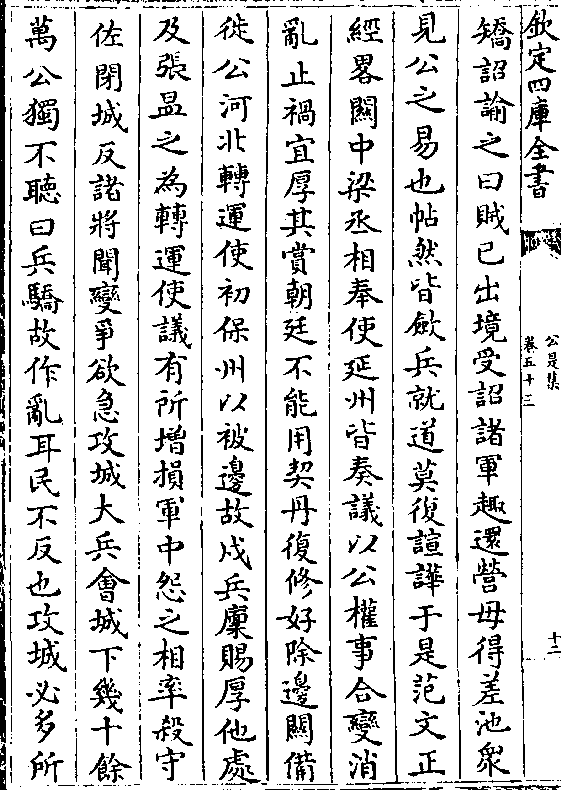 欽定四庫全書
公是集
卷五十三
十二
矯詔諭之曰賊已出境受詔諸軍趣還營毋得差池衆
見公之易也帖然皆斂兵就道莫復諠譁于是范文正
經畧闗中梁丞相奉使延州皆奏議以公權事合變消
亂止禍宜厚其賞朝廷不能用契丹復修好除邊闗備
徙公河北轉運使初保州以被邊故戍兵廩賜厚他處
及張昷之為轉運使議有所增損軍中怨之相率殺守
佐閉城反諸將聞變爭欲急攻城大兵會城下幾十餘
萬公獨不聽曰兵驕故作亂耳民不反也攻城必多所